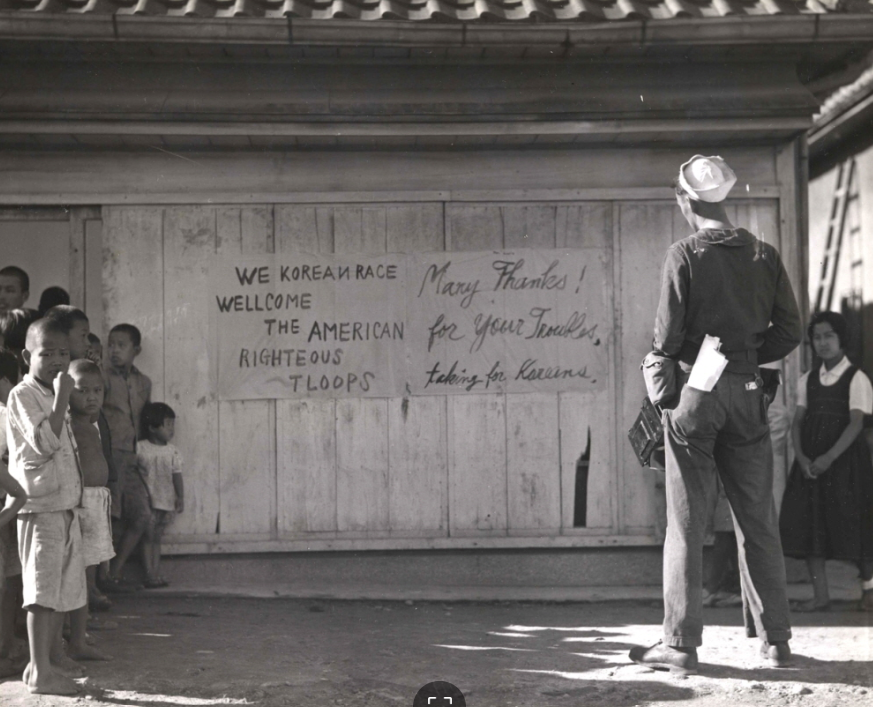 WE KOREAN RACE
WELLCOME
THE AMERICAN
RIGHTEOUS
TLOOPS
Many Thanks!
for Your Troubles,
taking for Koreans.